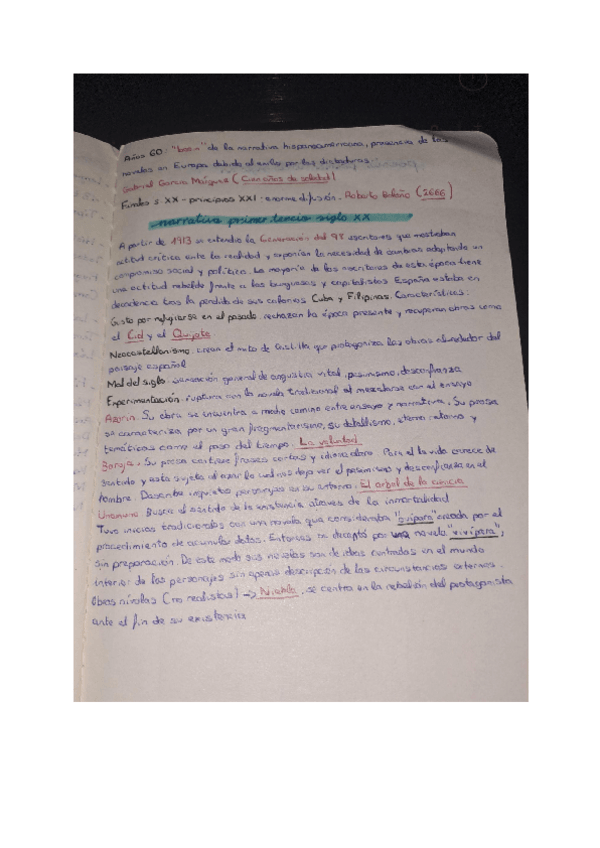 Años 60: "boom" de la narrativa hispanoamericana, presencia de las
novelas en Europa debido al exilio por las dictaduras
Gabriel García Márquez (Cien años de soledad)
Findes s XX - principios XXI: enorme difusión. Roberto Bolaño (2666)
narrativa primer tercio siglo XX
A partir de 1913 se extendió la Generación del 98 escritores que mostraban
actitud crítica ante la realidad y exponían la necesidad de cambios adoptando un
compromiso social y político. La mayoría de los escritores de esta época tiene
una actitud rebelde frente a los burgueses y capitalistas España estaba en
decadencia tras la pérdida de sus colonias Cuba y Filipinas. Características:
Gusto por refugiarse en el pasado: rechazan la época presente y recuperan obras como
el Cid y el Quijote
Neocastellanismo: crean el mito de Castilla que protagoniza las obras alrededor del
paisaje español
Mal del siglo: sensación general de angustia vital, pesimismo, desconfianza
Experimentación: ruptura con la novela tradicional al mezclarse con el ensayo
Azorín. Su obra se encuentra a medio camino entre ensayo y narrativa. Su prosa
se caracteriza por un gran fragmentarismo, su detallismo, eterno retorno y
temáticas como el paso del tiempo. La voluntad
Baroja. Su prosa contiene frases cortas y idioma claro. Para él la vida carece de
sentido y está sujeta al azar lo cual nos deja ver el pesimismo y desconfianza en el
hombre. Personajes en su entorno. El arbol de la ciencia
Unamuno Busca el sentido de la existencia através de la inmortalidad
Tuvo inicios tradicionales con una novela que consideraba "ovípara" creada por el
procedimiento de acumular datos. Entonces se decantó por una novela "vivípara",
sin preparación. De este modo sus novelas son de ideas centradas en el mundo
interior de los personajes sin apenas descripción de las circunstancias externas.
Obras nívolas (no realistas) → Niebla, se centra en la rebelión del protagonista
ante el fin de su existencia